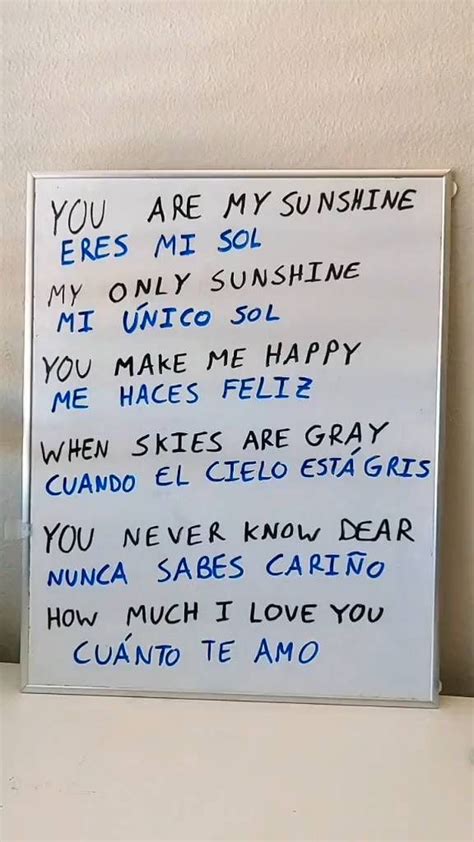 YOU ARE MY SUNSHINE
ERES MI SOL
MY ONLY SUNSHINE
MI ÚNICO SOL
YOU MAKE ME HAPPY
ME HACES FELIZ
WHEN SKIES ARE GRAY
CUANDO EL CIELO ESTÁ GRIS
YOU NEVER KNOW DEAR
NUNCA SABES CARIÑO
HOW MUCH I LOVE YOU
CUÁNTO TE AMO